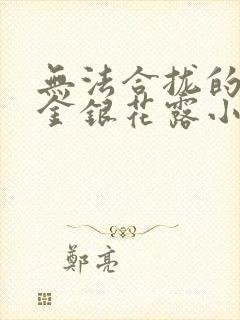 無法合拢的
金銀花露小
鄭亮